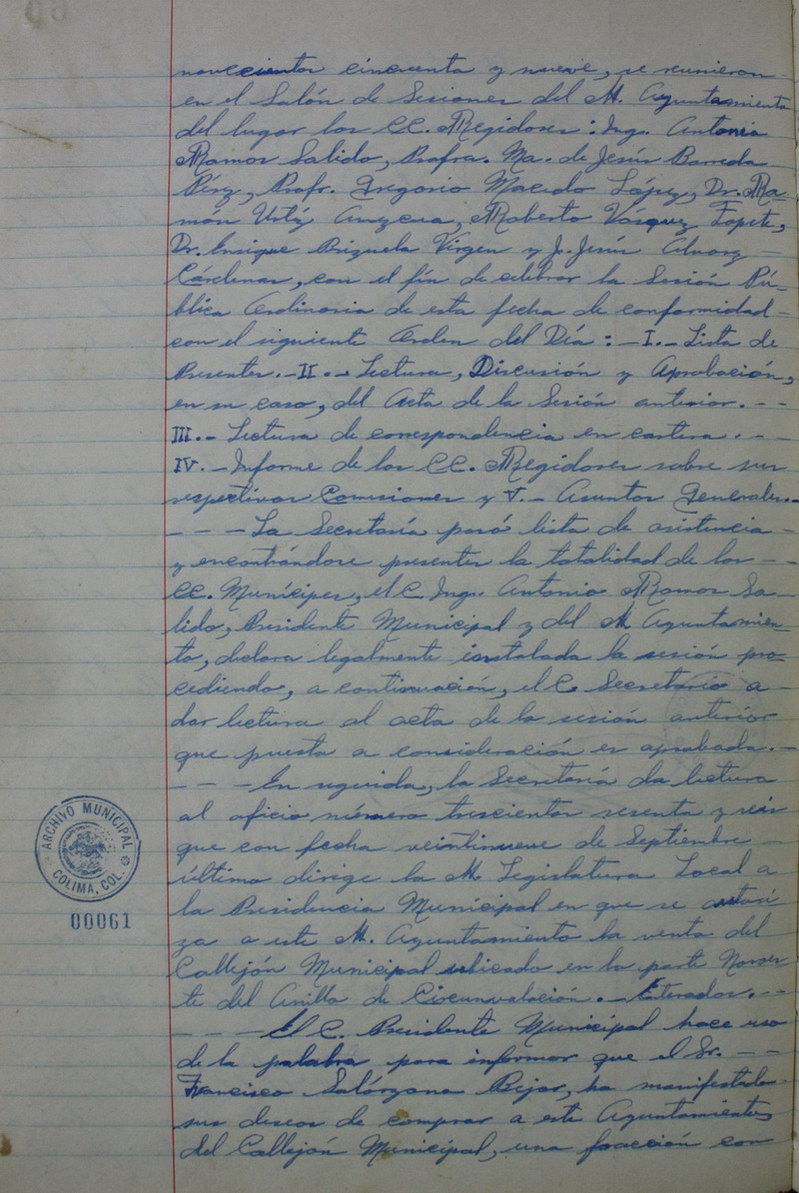 novecientos cincuenta y nueve, se reunieron
en el Salón de Sesiones del M. Ayuntamiento
del lugar los CC. Regidores: Ing. Antonio
Ramos Salido, Profra. Ma. de Jesús Barreda
Pérez, Profr. Gregorio Macedo López, Dr. Ra-
món Anzcua, Roberto Vázquez Topete,
Dr. Enrique Brizuela Virgen y J. Jesús Alvarez
Cárdenas, con el fín de celebrar la Sesión Pú-
blica Ordinaria de esta fecha de conformidad
con el siguiente Orden del Día: -I.- Lista de
Presentes.-II.- Lectura, Discusión y Aprobación,
en su caso, del Acta de la Sesión anterior.- -
III.- Lectura de correspondencia en cartera.- -
IV.- Informe de los CC. Regidores sobre sus
respectivas Comisiones y V.- Asuntos Generales.-
- - - La Secretaría pasó lista de asistencia -
y encontrándose presentes la totalidad de los - -
CC. Munícipes, el C Ing. Antonio Ramos Sa-
lido, Presidente Municipal y del M Ayuntamien-
to, declara legalmente instalada la sesión pro-
cediendo, a continuación, el C. Secretario a -
dar lectura al acta de la sesión anterior
que puesta a consideración es aprobada.-
- - - En seguida, la Secretaría da lectura
al oficio número trescientos sesenta y seis
que con fecha veintinueve de Septiembre -
último dirige la M. Legislatura Local a
la Presidencia Municipal en que se autori
za a este M. Ayuntamiento la venta del
Callejón Municipal ubicado en la parte Noroes
te del Anillo de Circunvalación.- Enterados.- -
- - - El C. Presidente Municipal hace uso
de la palabra para informar que el Sr. - -
Francisco Solórzano Bejar, ha manifestado
sus deseos de comprar a este Ayuntamiento,
del Callejón Municipal, una fracción con
ARCHIVO MUNICIPAL
COLIMA, COL.
00061